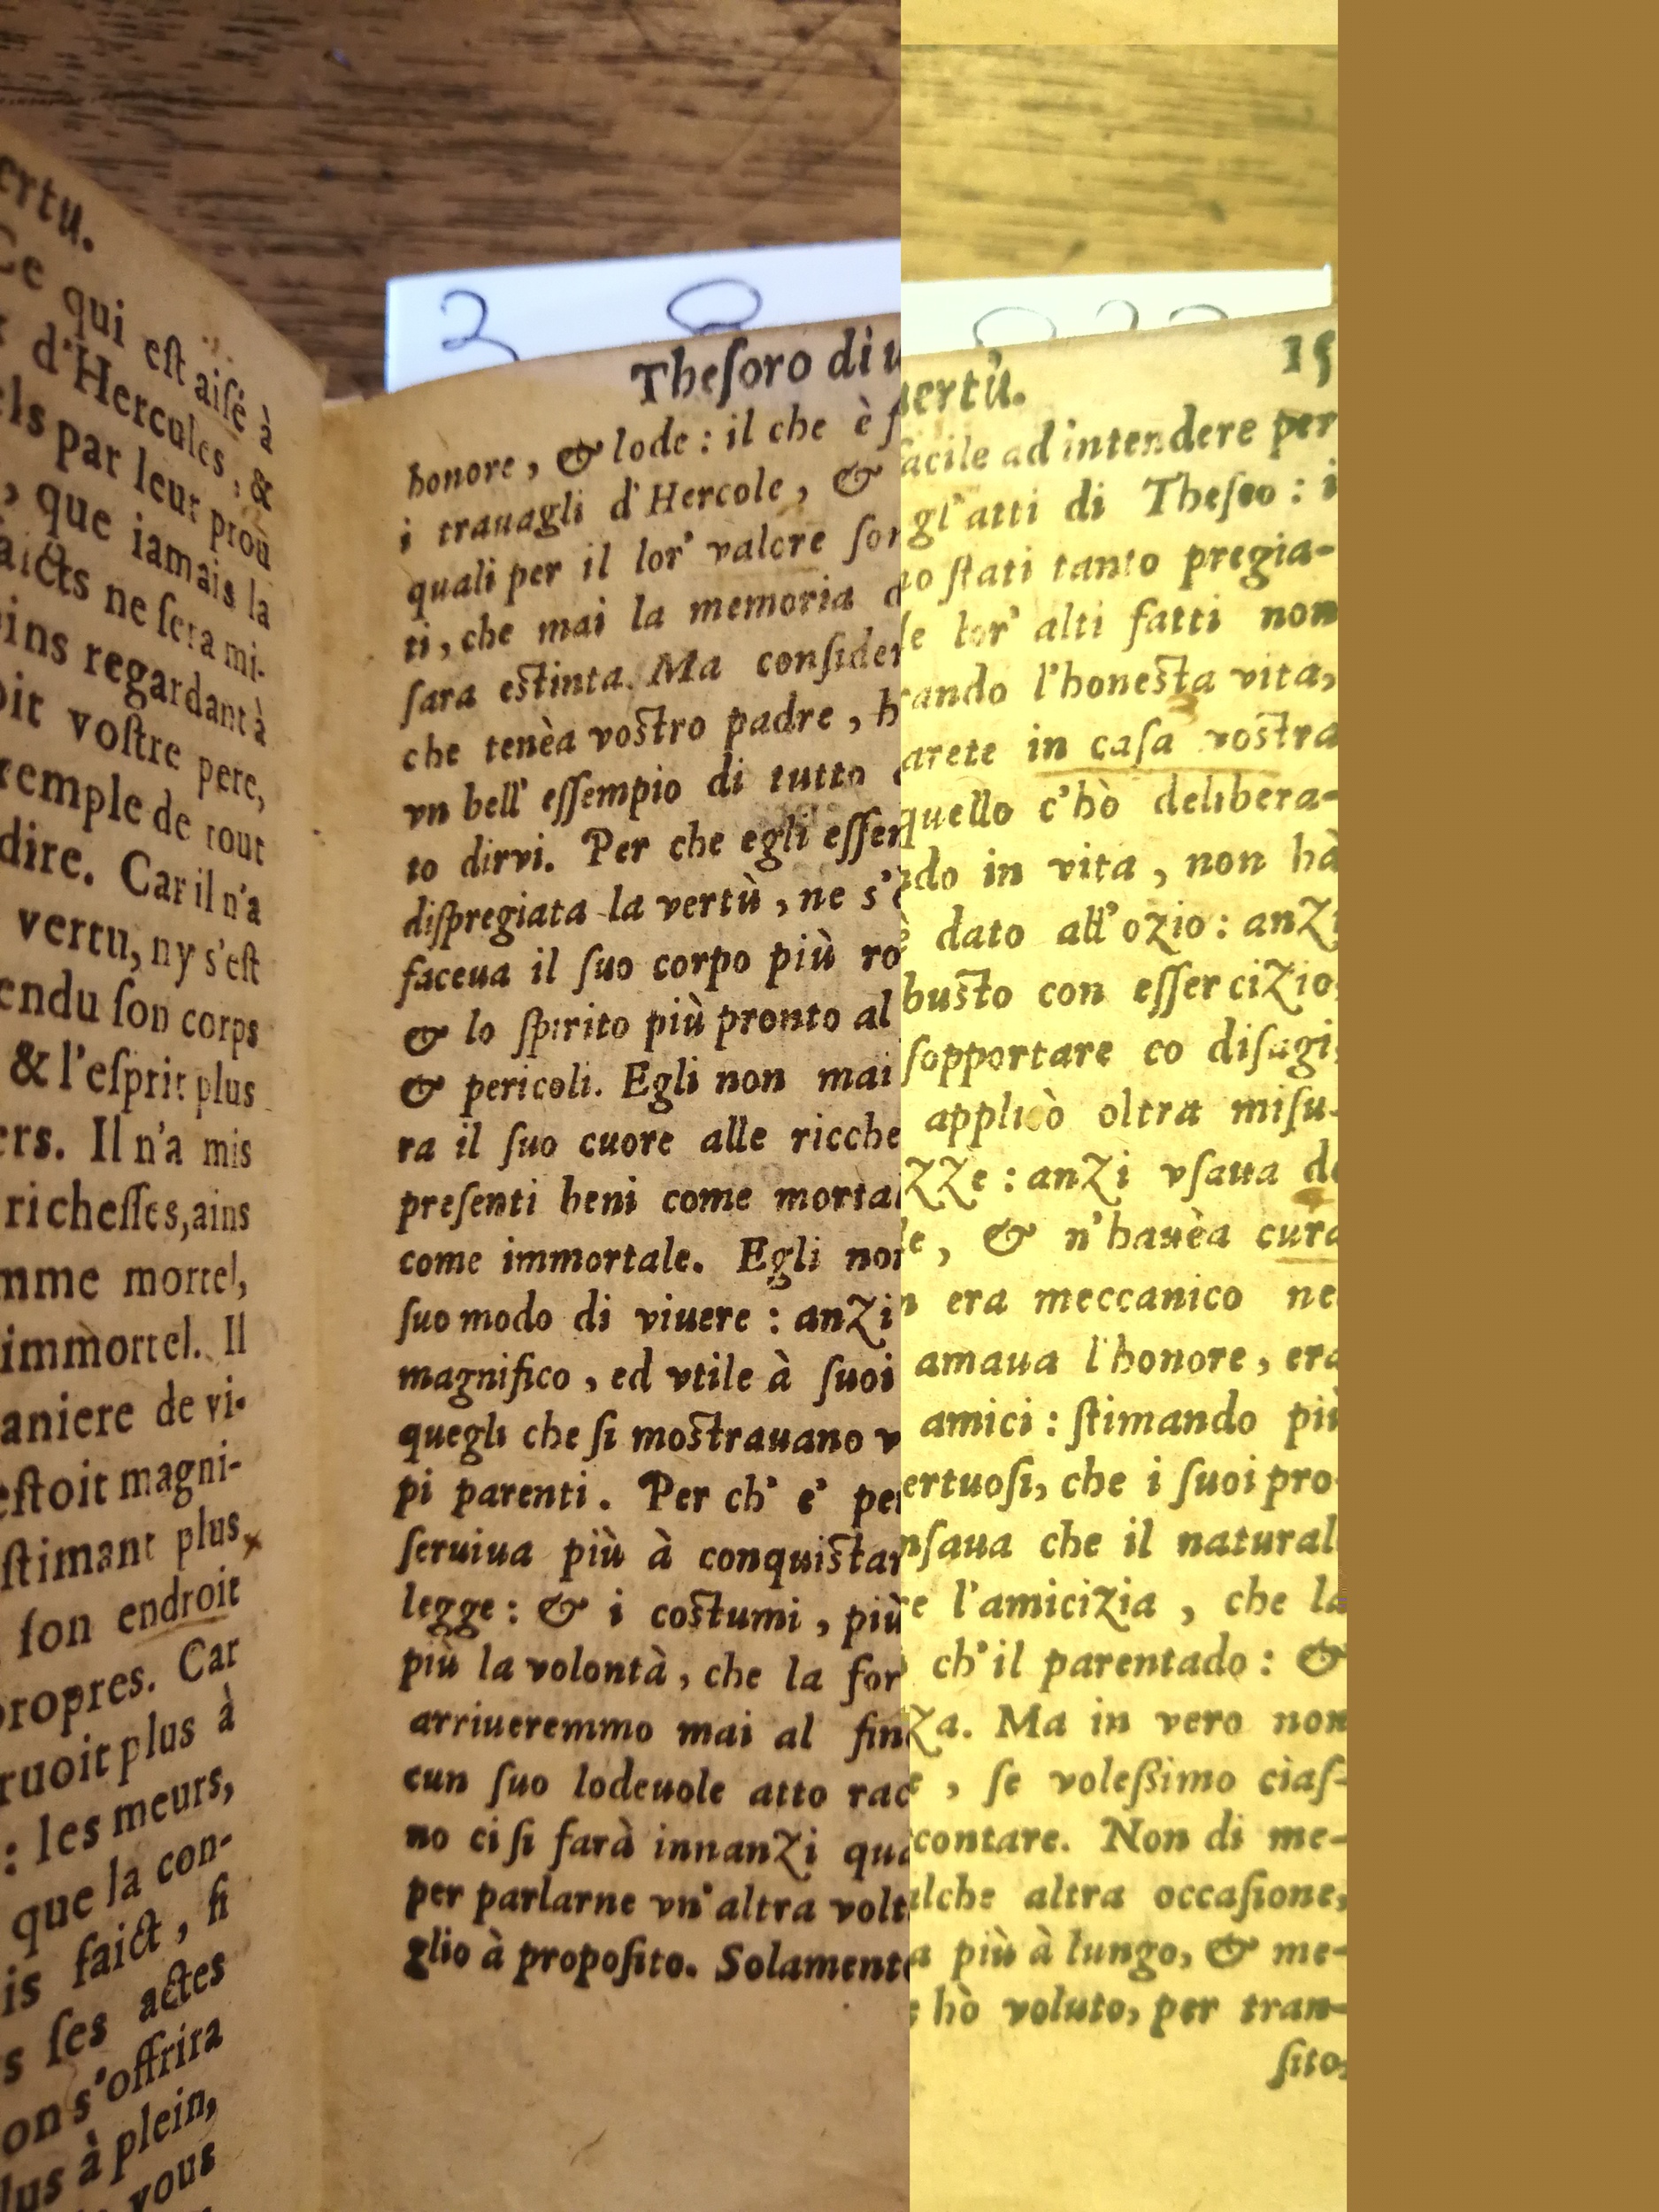 ertu.
Ce qui eſt aiſé à
d'Hercules, &
els par leur prou
, que iamais la
aicts ne ſera mi-
ins regardant à
oit voſtre pere,
xemple de tout
dire. Car il n'a
vertu, ny s'eſt
endu ſon corps
& l'eſprit plus
ers. Il n'a mis
richeſſes, ains
mme mortel,
immortel. Il
aniere de vi-
eſtoit magni-
ſtimant plus
ſon endroit
propres. Car
ruoit plus à
: les meurs,
que la con-
is faict, ſi
s ſes actes
on s'offrira
lus à plein,
vous
Theſoro di uertù. 15
honore, & lode : il che è facile ad intendere per
i trauagli d'Hercole, & gl'atti di Theſeo : i
quali per il lor' valore ſono ſtati tanto pregia-
ti, che mai la memoria de lor' alti fatti non
ſara eſtinta. Ma conſiderando l'honeſta vita,
che tenèa voſtro padre, harete in caſa voſtra
vn bell' eſſempio di tutto quello c'hò delibera-
to dirvi. Per che egli eſſendo in vita, non hà
diſpregiata la vertù, ne s'è dato all'ozio : anzi
faceua il ſuo corpo più robuſto con eſſercizio,
& lo ſpirito più pronto al ſopportare co diſagi,
& pericoli. Egli non mai applicò oltra miſu-
ra il ſuo cuore alle ricchezze : anzi vſaua de
preſenti beni come mortale, & n'hauèa cura
come immortale. Egli non era meccanico nel
ſuo modo di viuere : anzi amaua l'honore, era
magnifico, ed vtile à ſuoi amici : ſtimando più
quegli che ſi moſtrauano vertuoſi, che i ſuoi pro-
pi parenti. Per ch' e' penſaua che il natural
ſeruiua più à conquiſtare l'amicizia, che la
legge : & i coſtumi, più ch'il parentado : &
più la volontà, che la forza. Ma in vero non
arriueremmo mai al fine, ſe voleſſimo ciaſ-
cun ſuo lodeuole atto raccontare. Non di me-
no ci ſi farà innanzi qualche altra occaſione,
per parlarne vn'altra volta più à lungo, & me-
glio à propoſito. Solamente hò voluto, per tran-
ſito,